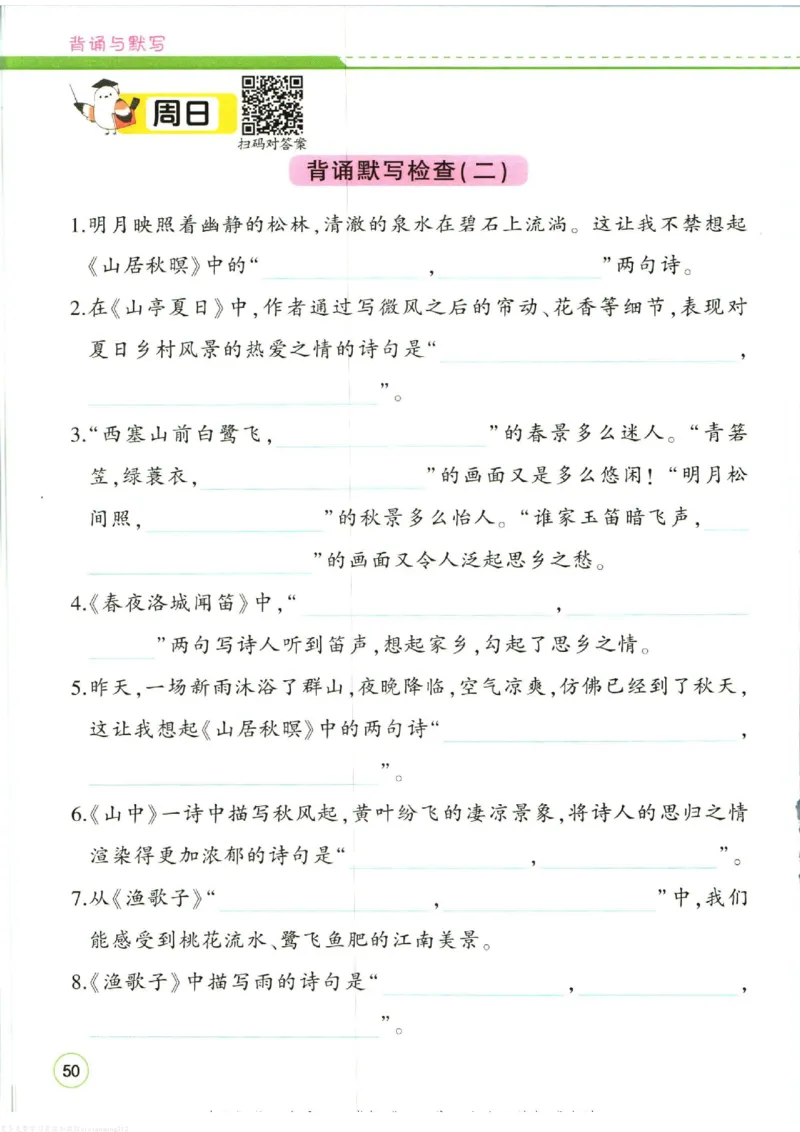 背诵与默写
周日
扫码对答案
背诵默写检查(二)
1.明月映照着幽静的松林,清澈的泉水在碧石上流淌。这让我不禁想起
《山居秋暝》中的“ , ”两句诗。
2.在《山亭夏日》中,作者通过写微风之后的帘动、花香等细节,表现对
夏日乡村风景的热爱之情的诗句是“ ,
”。
3.“西塞山前白鹭飞, ”的春景多么迷人。“青箬
笠,绿蓑衣, ”的画面又是多么悠闲!“明月松
间照, ”的秋景多么怡人。“谁家玉笛暗飞声,
”的画面又令人泛起思乡之愁。
4.《春夜洛城闻笛》中,“ ,
”两句写诗人听到笛声,想起家乡,勾起了思乡之情。
5.昨天,一场新雨沐浴了群山,夜晚降临,空气凉爽,仿佛已经到了秋天,
这让我想起《山居秋暝》中的两句诗“ ,
”。
6.《山中》一诗中描写秋风起,黄叶纷飞的凄凉景象,将诗人的思归之情
渲染得更加浓郁的诗句是“ , ”。
7.从《渔歌子》“ , ”中,我们
能感受到桃花流水、鹭飞鱼肥的江南美景。
8.《渔歌子》中描写雨的诗句是“ , ,
”。
50